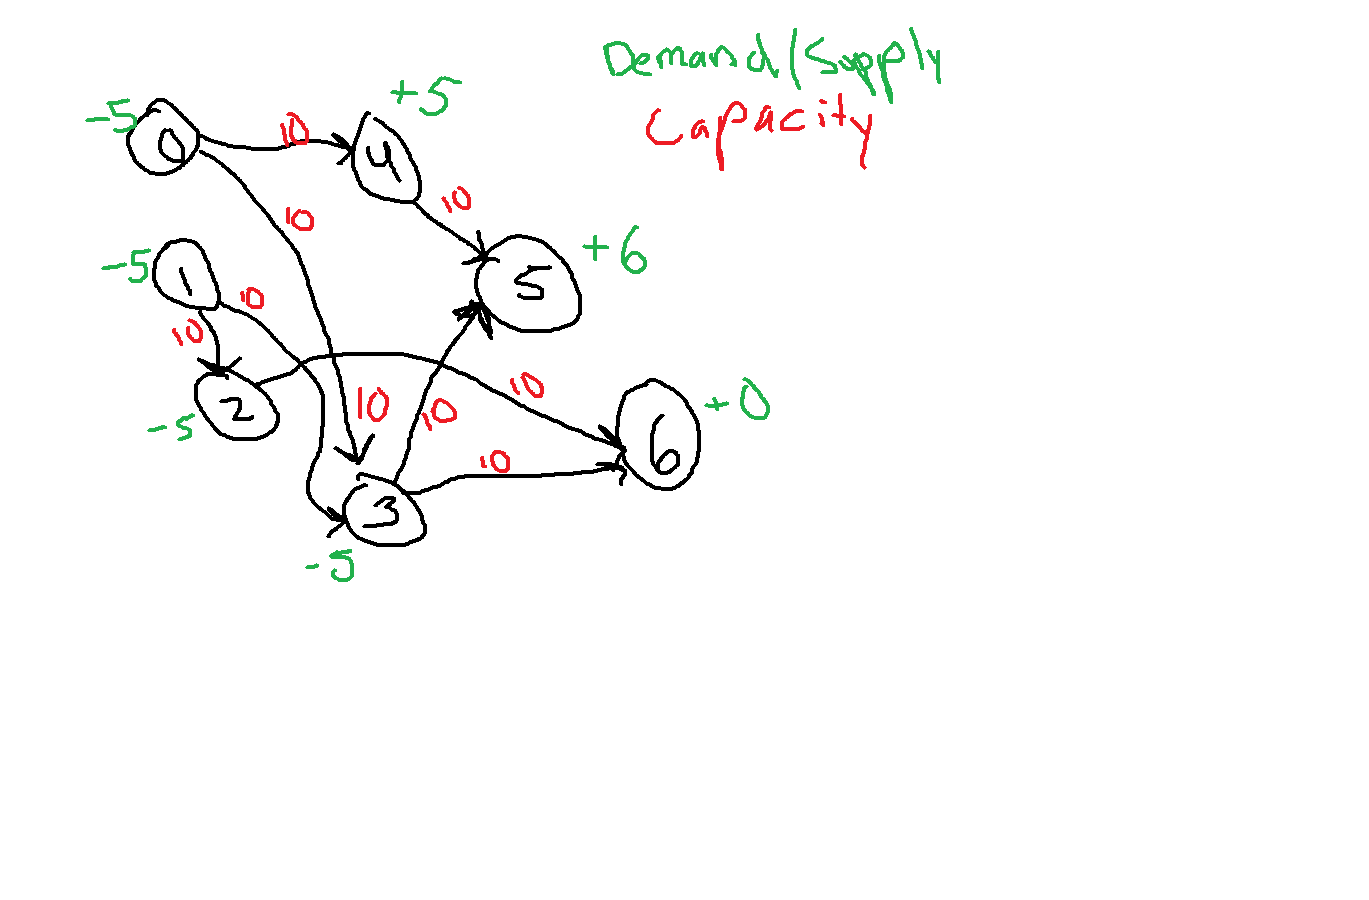 Demand/Supply
Capacity
-5
0
10
+5
4
10
10
+6
5
-5
1
10
10
2
-5
10
10
10
10
+0
6
3
-5